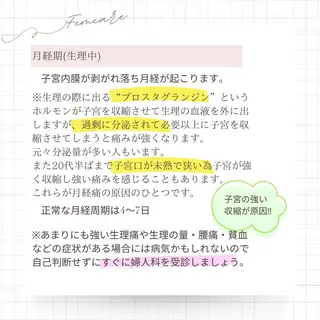 Femcare
月経期(生理中)
子宮内膜が剥がれ落ち月経が起こります。
※生理の際に出る“プロスタグランジン”という
ホルモンが子宮を収縮させて生理の血液を外に出
しますが、過剰に分泌されて必要以上に子宮を収
縮させてしまうと痛みが強くなります。
元々分泌量が多い人もいます。
また20代半ばまで子宮口が未熟で狭い為子宮が強
く収縮し強い痛みを感じることもあります。
これらが月経痛の原因のひとつです。
子宮の強い
収縮が原因!!
正常な月経周期は4〜7日
※あまりにも強い生理痛や生理の量・腰痛・貧血
などの症状がある場合には病気かもしれないので
自己判断せずにすぐに婦人科を受診しましょう。